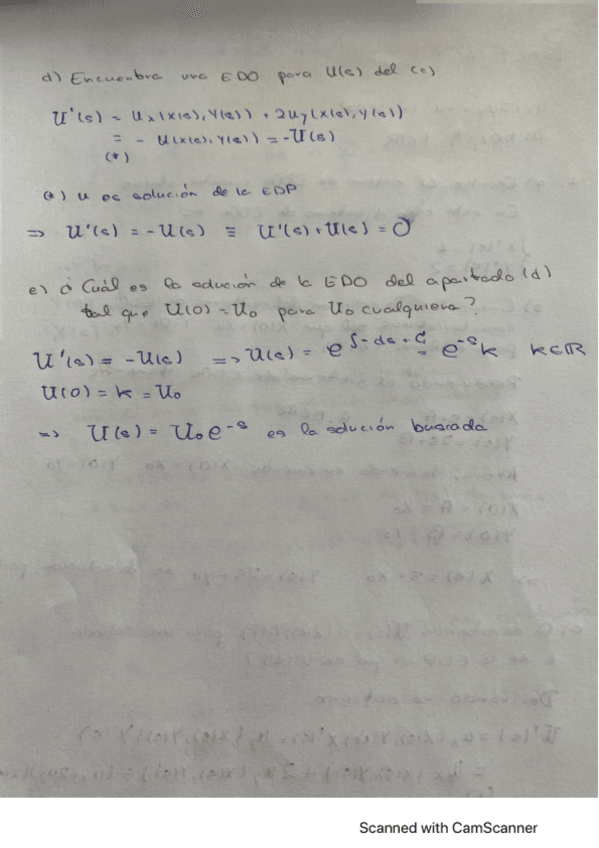 d) Encuentra una EDO para U(s) del (c)
U'(s) = ux(x(s), y(s)) + 2uy(x(s), y(s))
= - u(x(s), y(s)) = -U(s)
(*)
(*) u es solución de la EDP
=> U'(s) = -U(s) ≡ U'(s) + U(s) = 0
e) ¿Cuál es la solución de la EDO del apartado (d)
tal que U(0) = U0 para U0 cualquiera?
U'(s) = -U(s) => U(s) = e^{∫-ds + C} = e^{-s}k k∈ℝ
U(0) = k = U0
=> U(s) = U0e^{-s} es la solución buscada
Scanned with CamScanner